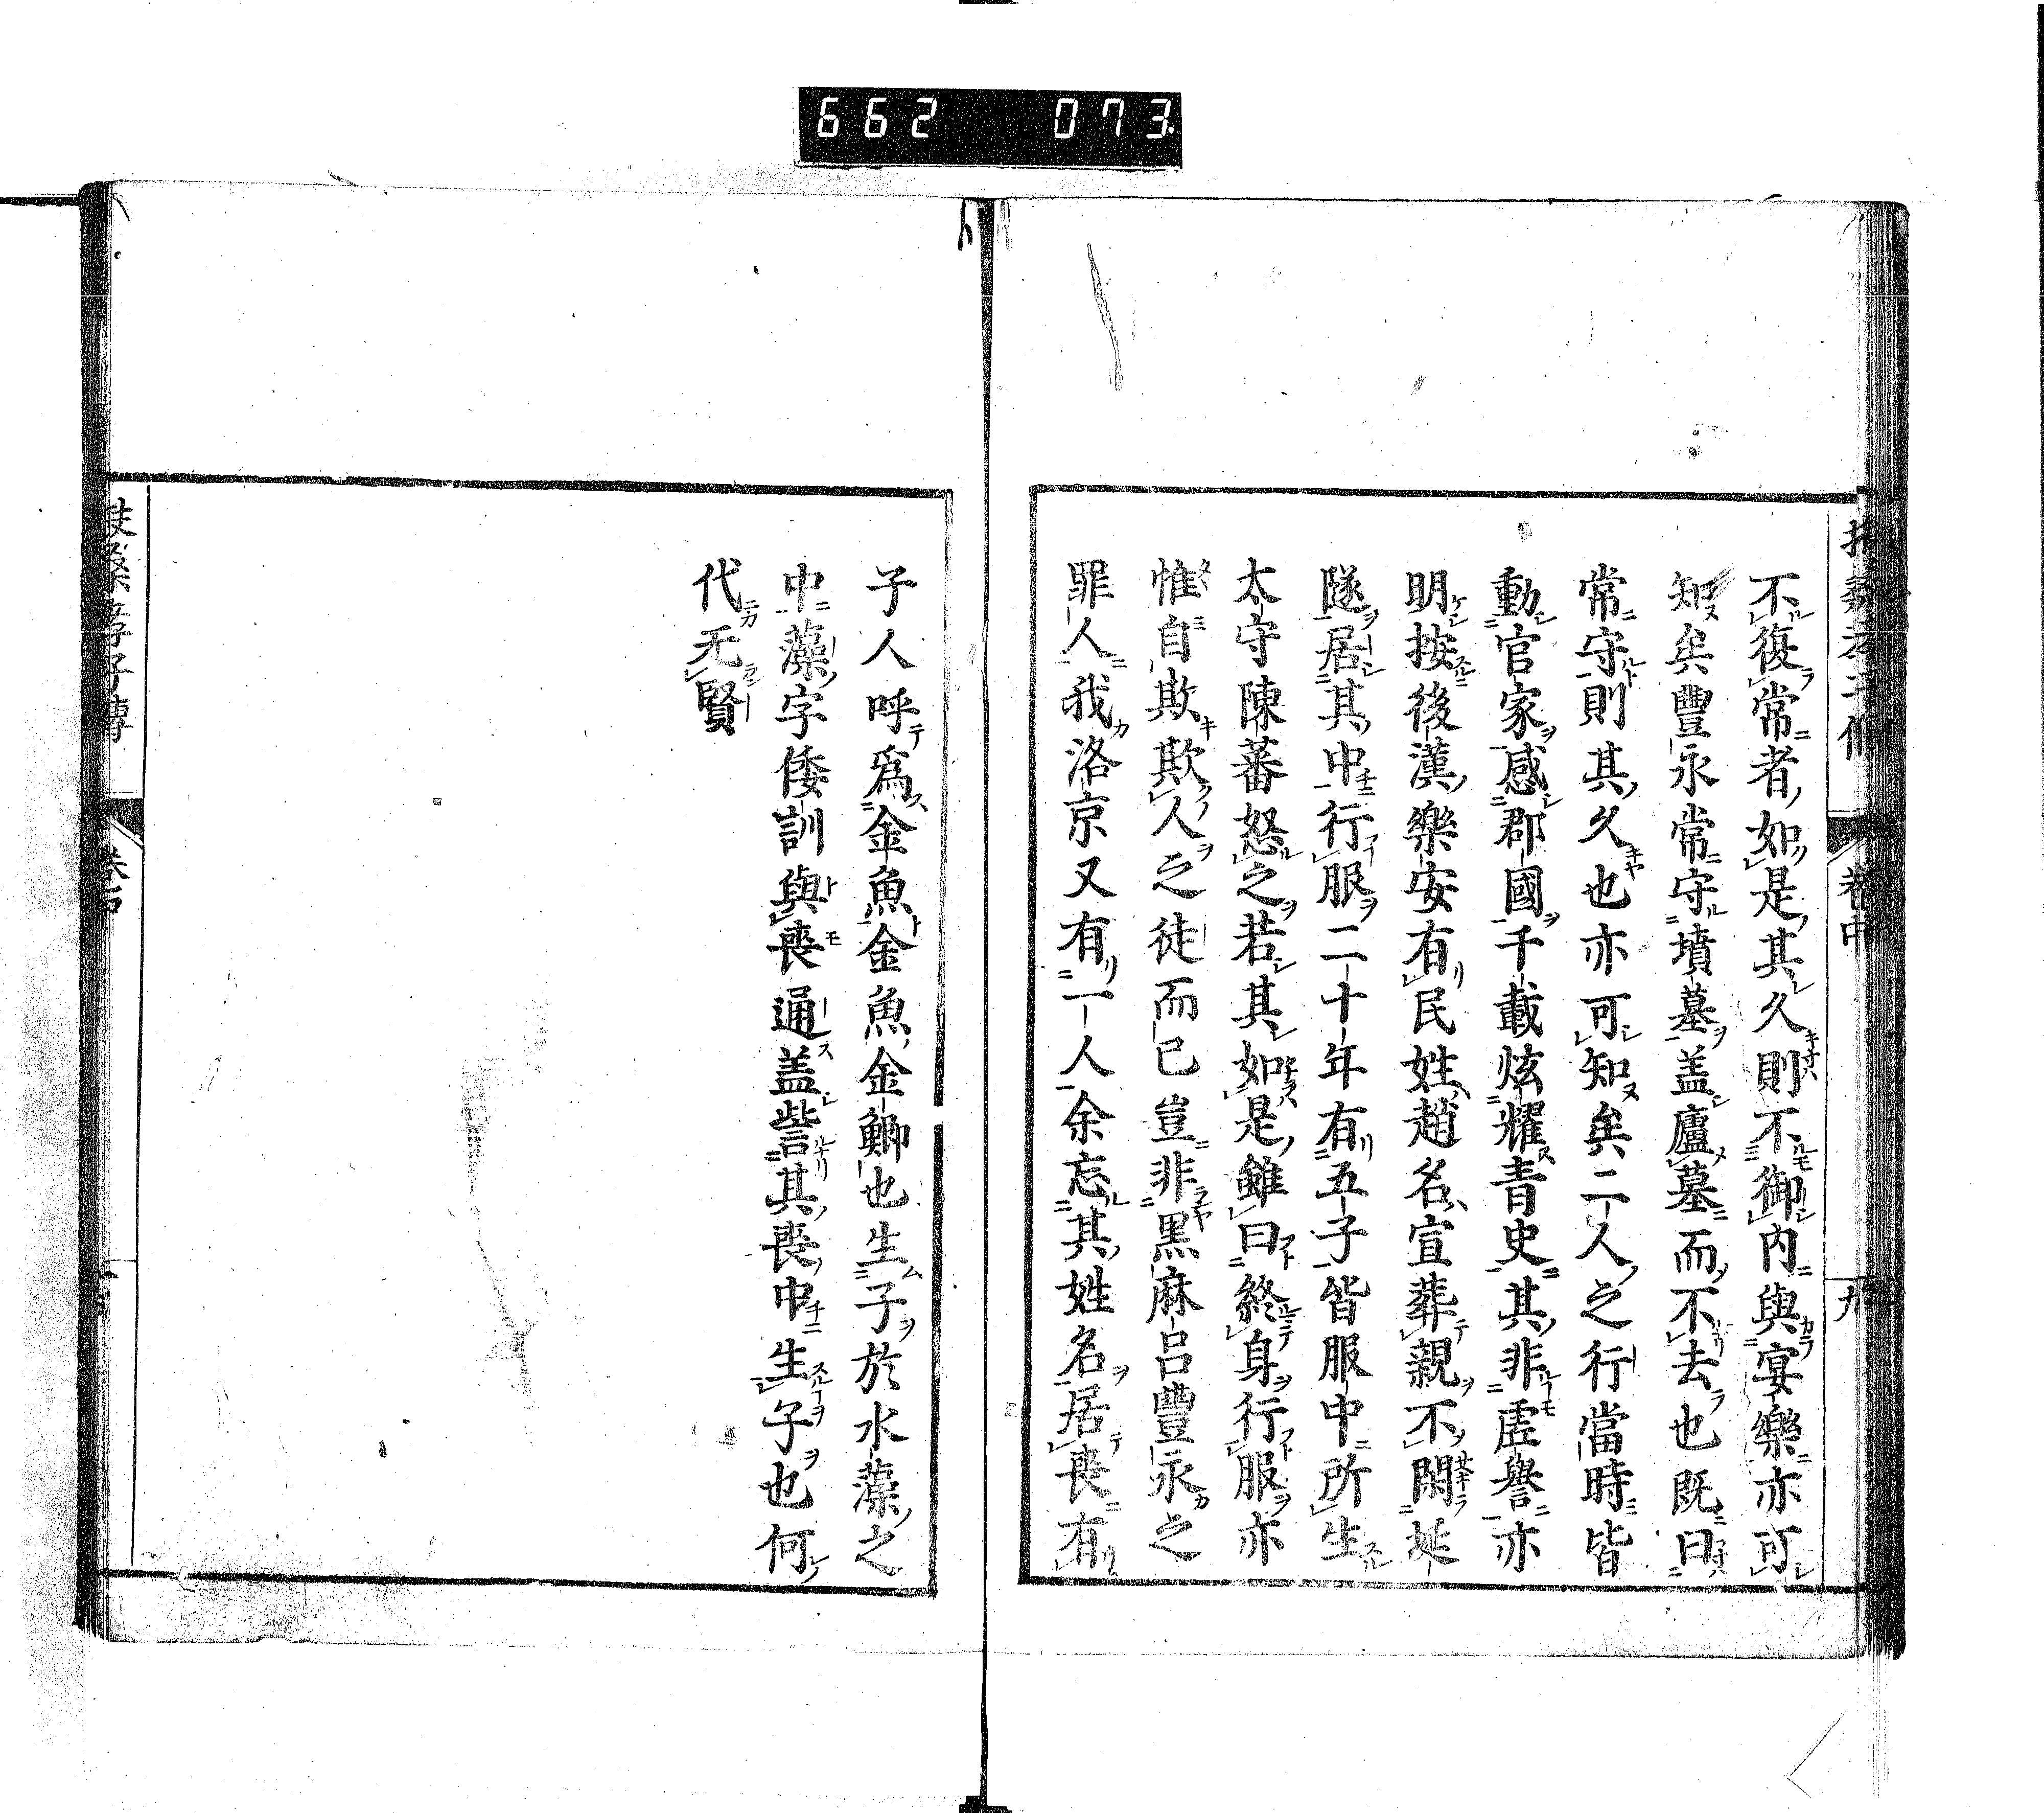 662 073
不復常者如是其久則不御內與宴樂亦可
知矣豐永常守墳墓盖廬墓而不去也既曰
常守則其久也亦可知矣二人之行當時皆
動官家感郡國千載炫耀青史其非虛譽亦
明按後漢樂安有民姓趙名宣葬親不閉埏
隧居其中行服二十年有五子皆服中所生
太守陳蕃怒之若其如是雖曰終身行服亦
惟自欺欺人之徒而已豈非黑麻呂豐永之
罪人我洛京又有一人余忘其姓名居喪有
子人呼爲金魚金魚金鯽也生子於水藻之
中藻字倭訓與喪通盖訾其喪中生子也何
代无賢
卷中
九